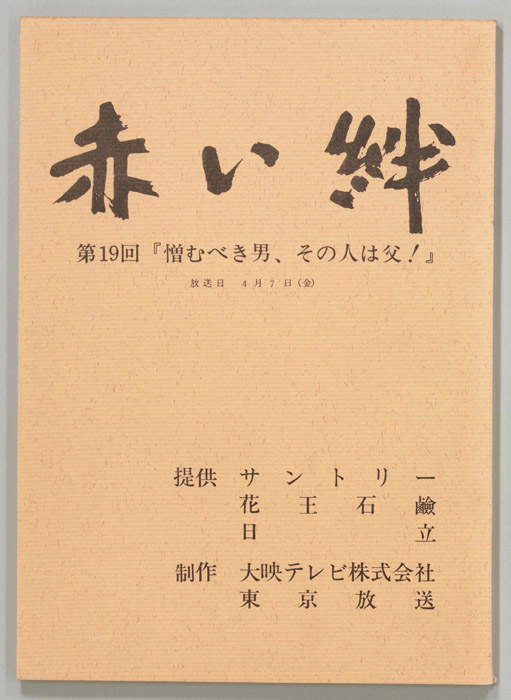 赤い絆
第19回『憎むべき男、その人は父!』
放送日 4月7日(金)
提供 サントリー
花王石鹼
日立
制作 大映テレビ株式会社
東京放送